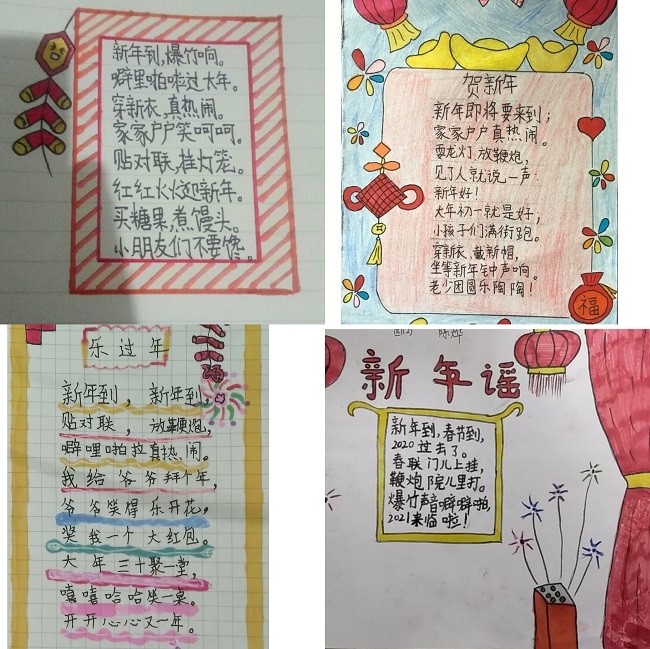 新年到,爆竹响。
噼里啪啦过大年。
穿新衣,真热闹。
家家户户笑呵呵。
贴对联,挂灯笼。
红红火火迎新年。
买糖果,煮馒头。
小朋友们不要馋。
贺新年
新年即将要来到;
家家户户真热闹。
耍龙灯,放鞭炮,
见了人就说一声:
新年好!
大年初一就是好;
小孩子们满街跑。
穿新衣、戴新帽,
坐等新年钟声响。
老少团圆乐陶陶!
福
乐过年
新年到,新年到,
贴对联,放鞭炮,
噼哩啪拉真热闹。
我给爷爷拜个年,
爷爷笑得乐开花。
奖我一个大红包。
大年三十聚一堂,
嘻嘻哈哈笑一桌。
开开心心又一年。
陈烨
新年谣
新年到,春节到,
2020过去了。
春联门儿上挂,
鞭炮院儿里打。
爆竹声音噼噼啪,
2021来临啦!